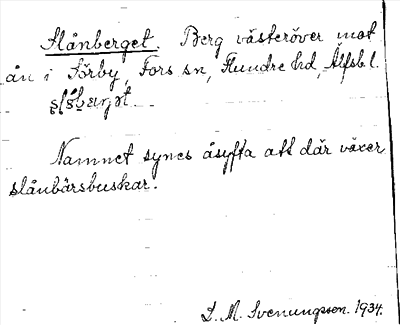 Slånberget. Berg västeröver mot
ån i Sörby, Fors sn, Flundre hd, Älfsb. l.
Namnet synes åsyfta att där växer
slånbärsbuskar.
D. M. Svenungsson. 1934.